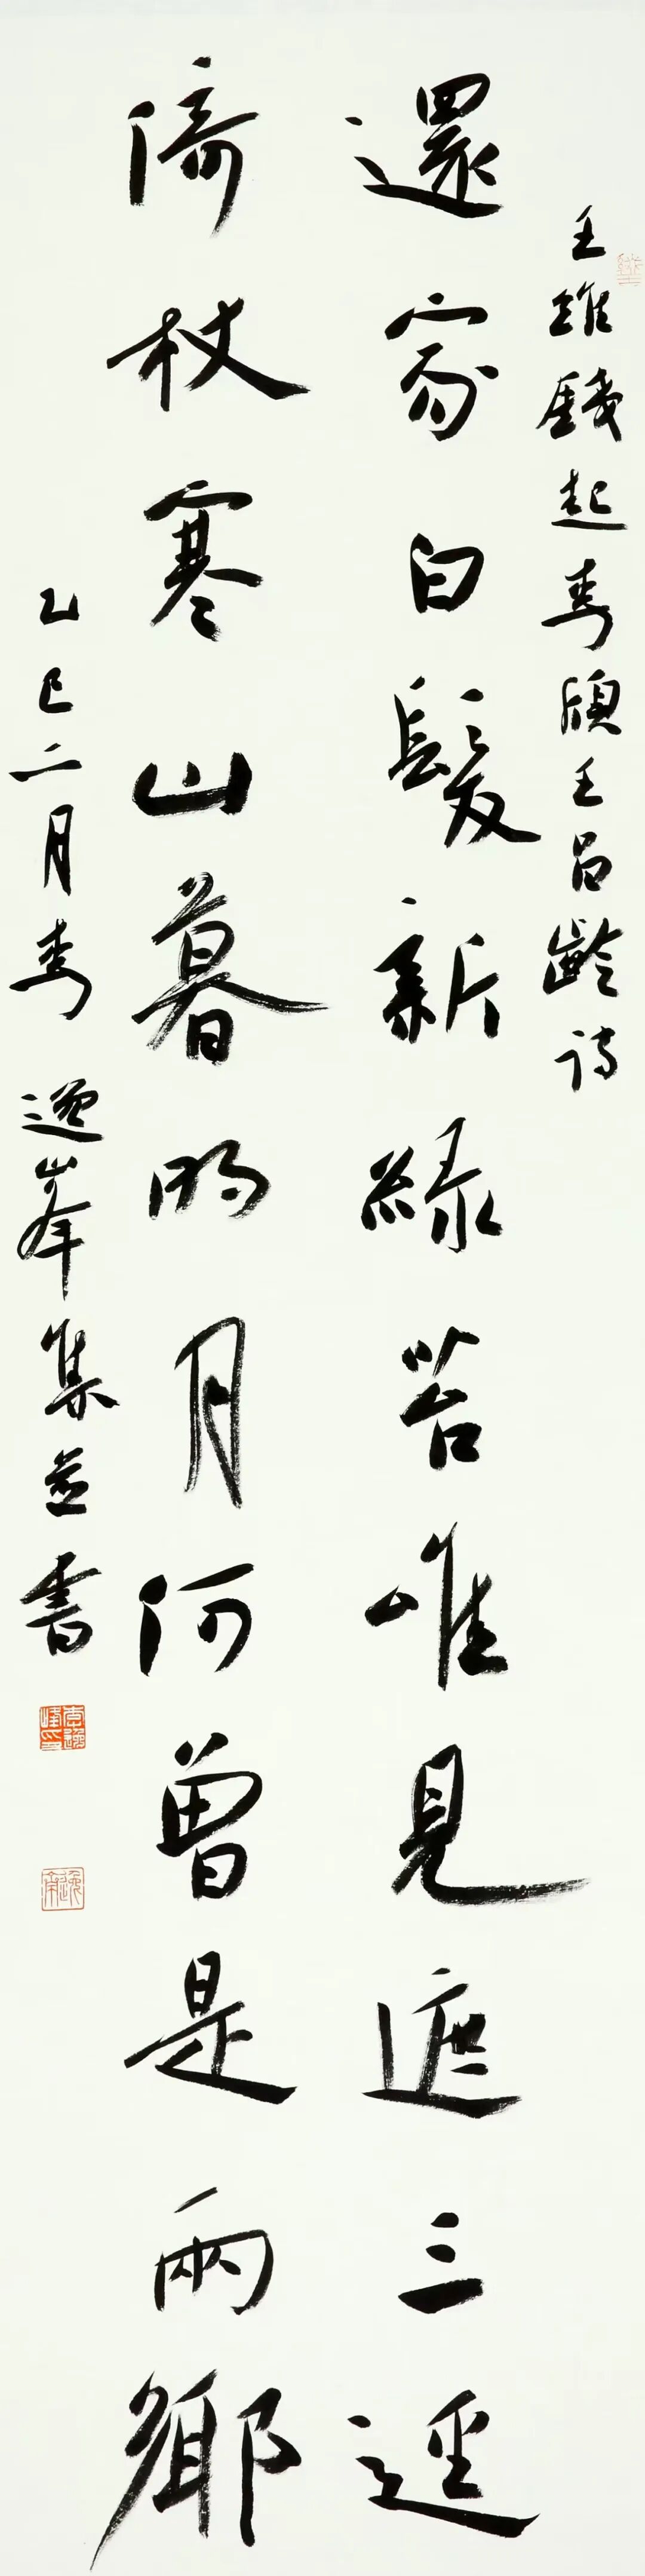 王維錢起李頎王昌齡詩
還家白髮新綠苔唯見遮三逕
倚杖寒山暮明月何曾是兩鄉
乙巳二月李逸峰集並書
李逸峰印